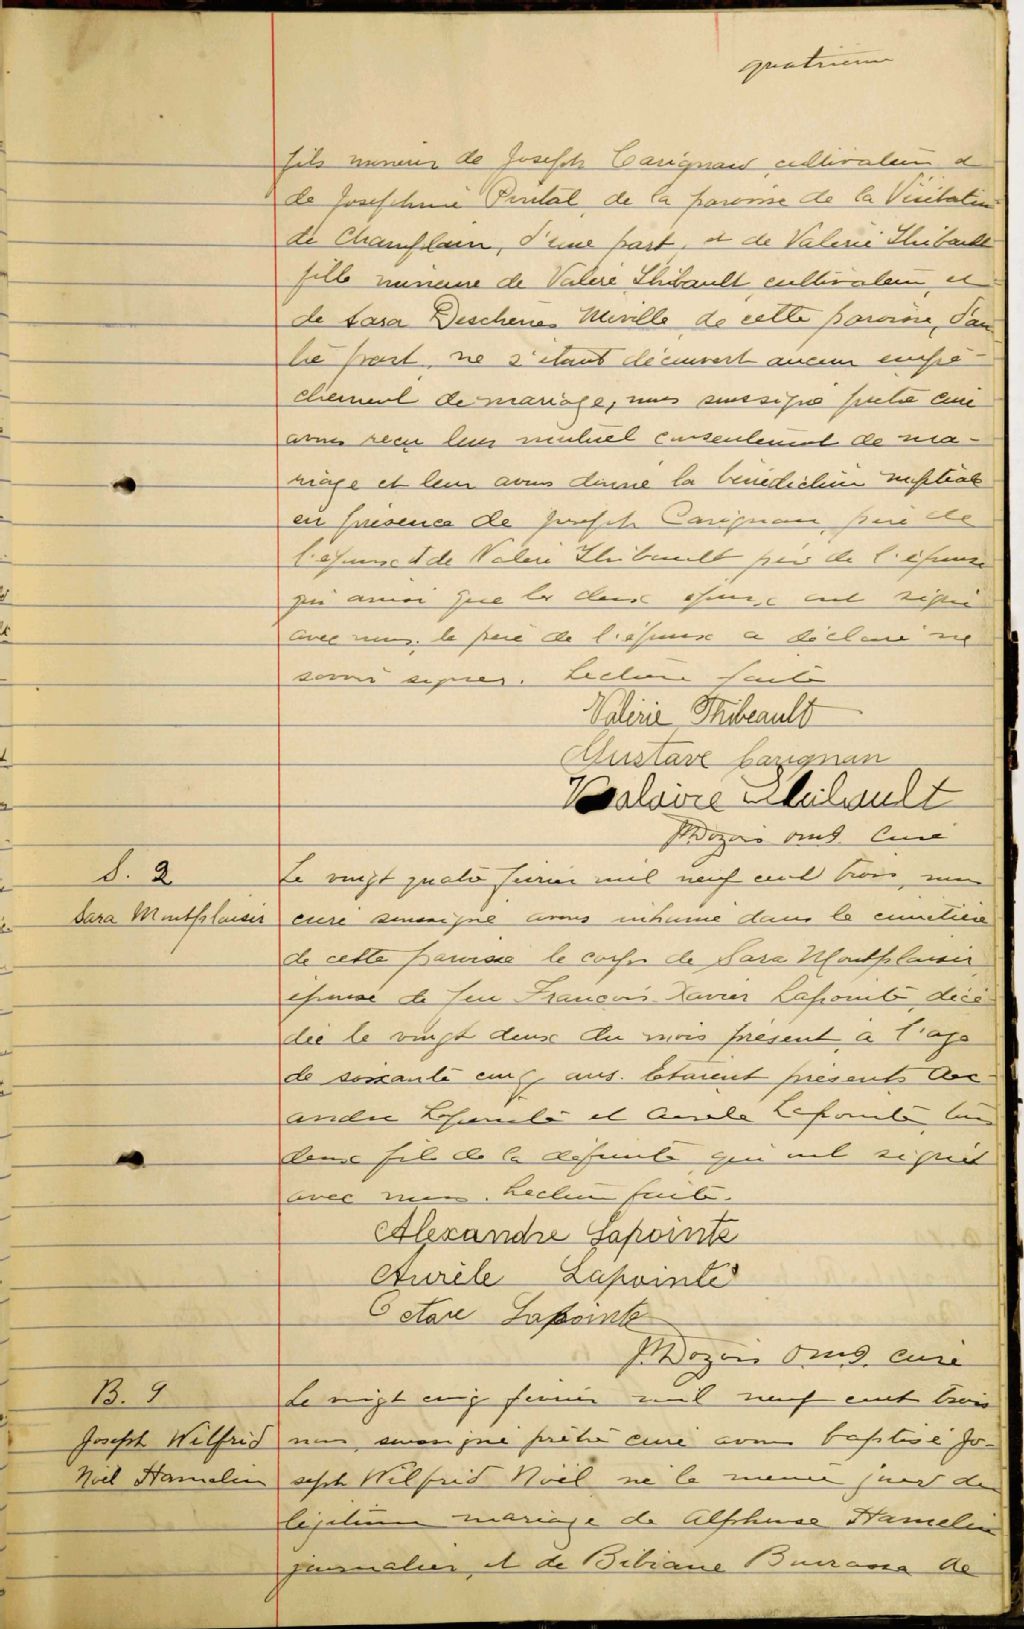 quatrième
fils mineur de Joseph Carignan, cultivateur et
de Josephine Pintal, de la paroisse de la Visitation
de Champlain, d'une part, et de Valerie Thibault
fille mineure de Valere Thibault, cultivateur, et
de Sara Deschenes Miville de cette paroisse, d'au
tre part, ne s'étant découvert aucun empê-
chement de mariage, nous soussigné prêtre curé
avons reçu leur mutuel consentement de ma-
riage et leur avons donné la bénédiction nuptiale
en présence de Joseph Carignan, père de
l'époux et de Valere Thibault père de l'épouse
qui ainsi que les deux époux ont signé
avec nous, le père de l'époux a déclaré ne
savoir signer. Lecture faite
Valérie Thibeault
Gustave Carignan
Valaire Thibault
Dozois O.M.I. Curé
S. 2
Sara Montplaisir
Le vingt quatre février mil neuf cent trois, nous
curé soussigné avons inhumé dans le cimetière
de cette paroisse le corps de Sara Montplaisir
épouse de feu François-Xavier Lapointe, décé-
dée le vingt deux du mois présent, à l'age
de soixante cinq ans. Etaient présents Alex-
andre Lapointe et Aurèle Lapointe, tous
deux fils de la défunte qui ont signé
avec nous. Lecture faite.
Alexandre Lapointe
Aurèle Lapointe
Octave Lapointe
Dozois O.M.I. curé
B. 9
Joseph Wilfrid
Noël Hamelin
Le vingt cinq février mil neuf cent trois
nous, soussigné prêtre curé avons baptisé Jo-
seph Wilfrid Noël né le meme jour du
légitime mariage de Alphonse Hamelin
journalier, et de Bibiane Bourassa de